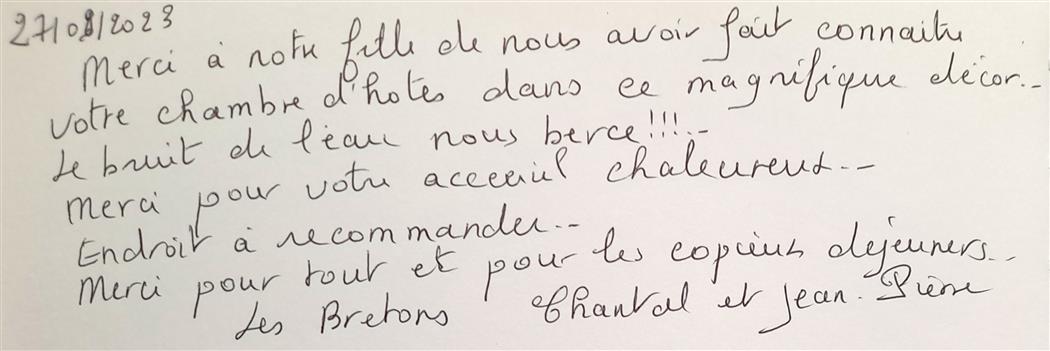 27/08/2023
Merci à notre fille de nous avoir fait connaitre
votre chambre d'hotes dans ce magnifique décor..
Le bruit de l'eau nous berce!!!..
Merci pour votre acceuil chaleureux...
Endroit à recommander...
Merci pour tout et pour les copieux déjeuners..
Les Bretons Chantal et Jean-Pierre